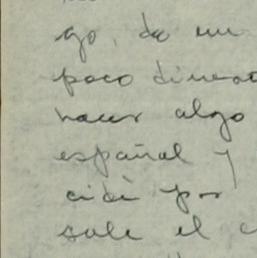 go, da un
poco dinero
hacer algo
español y
cidi por
sale el c